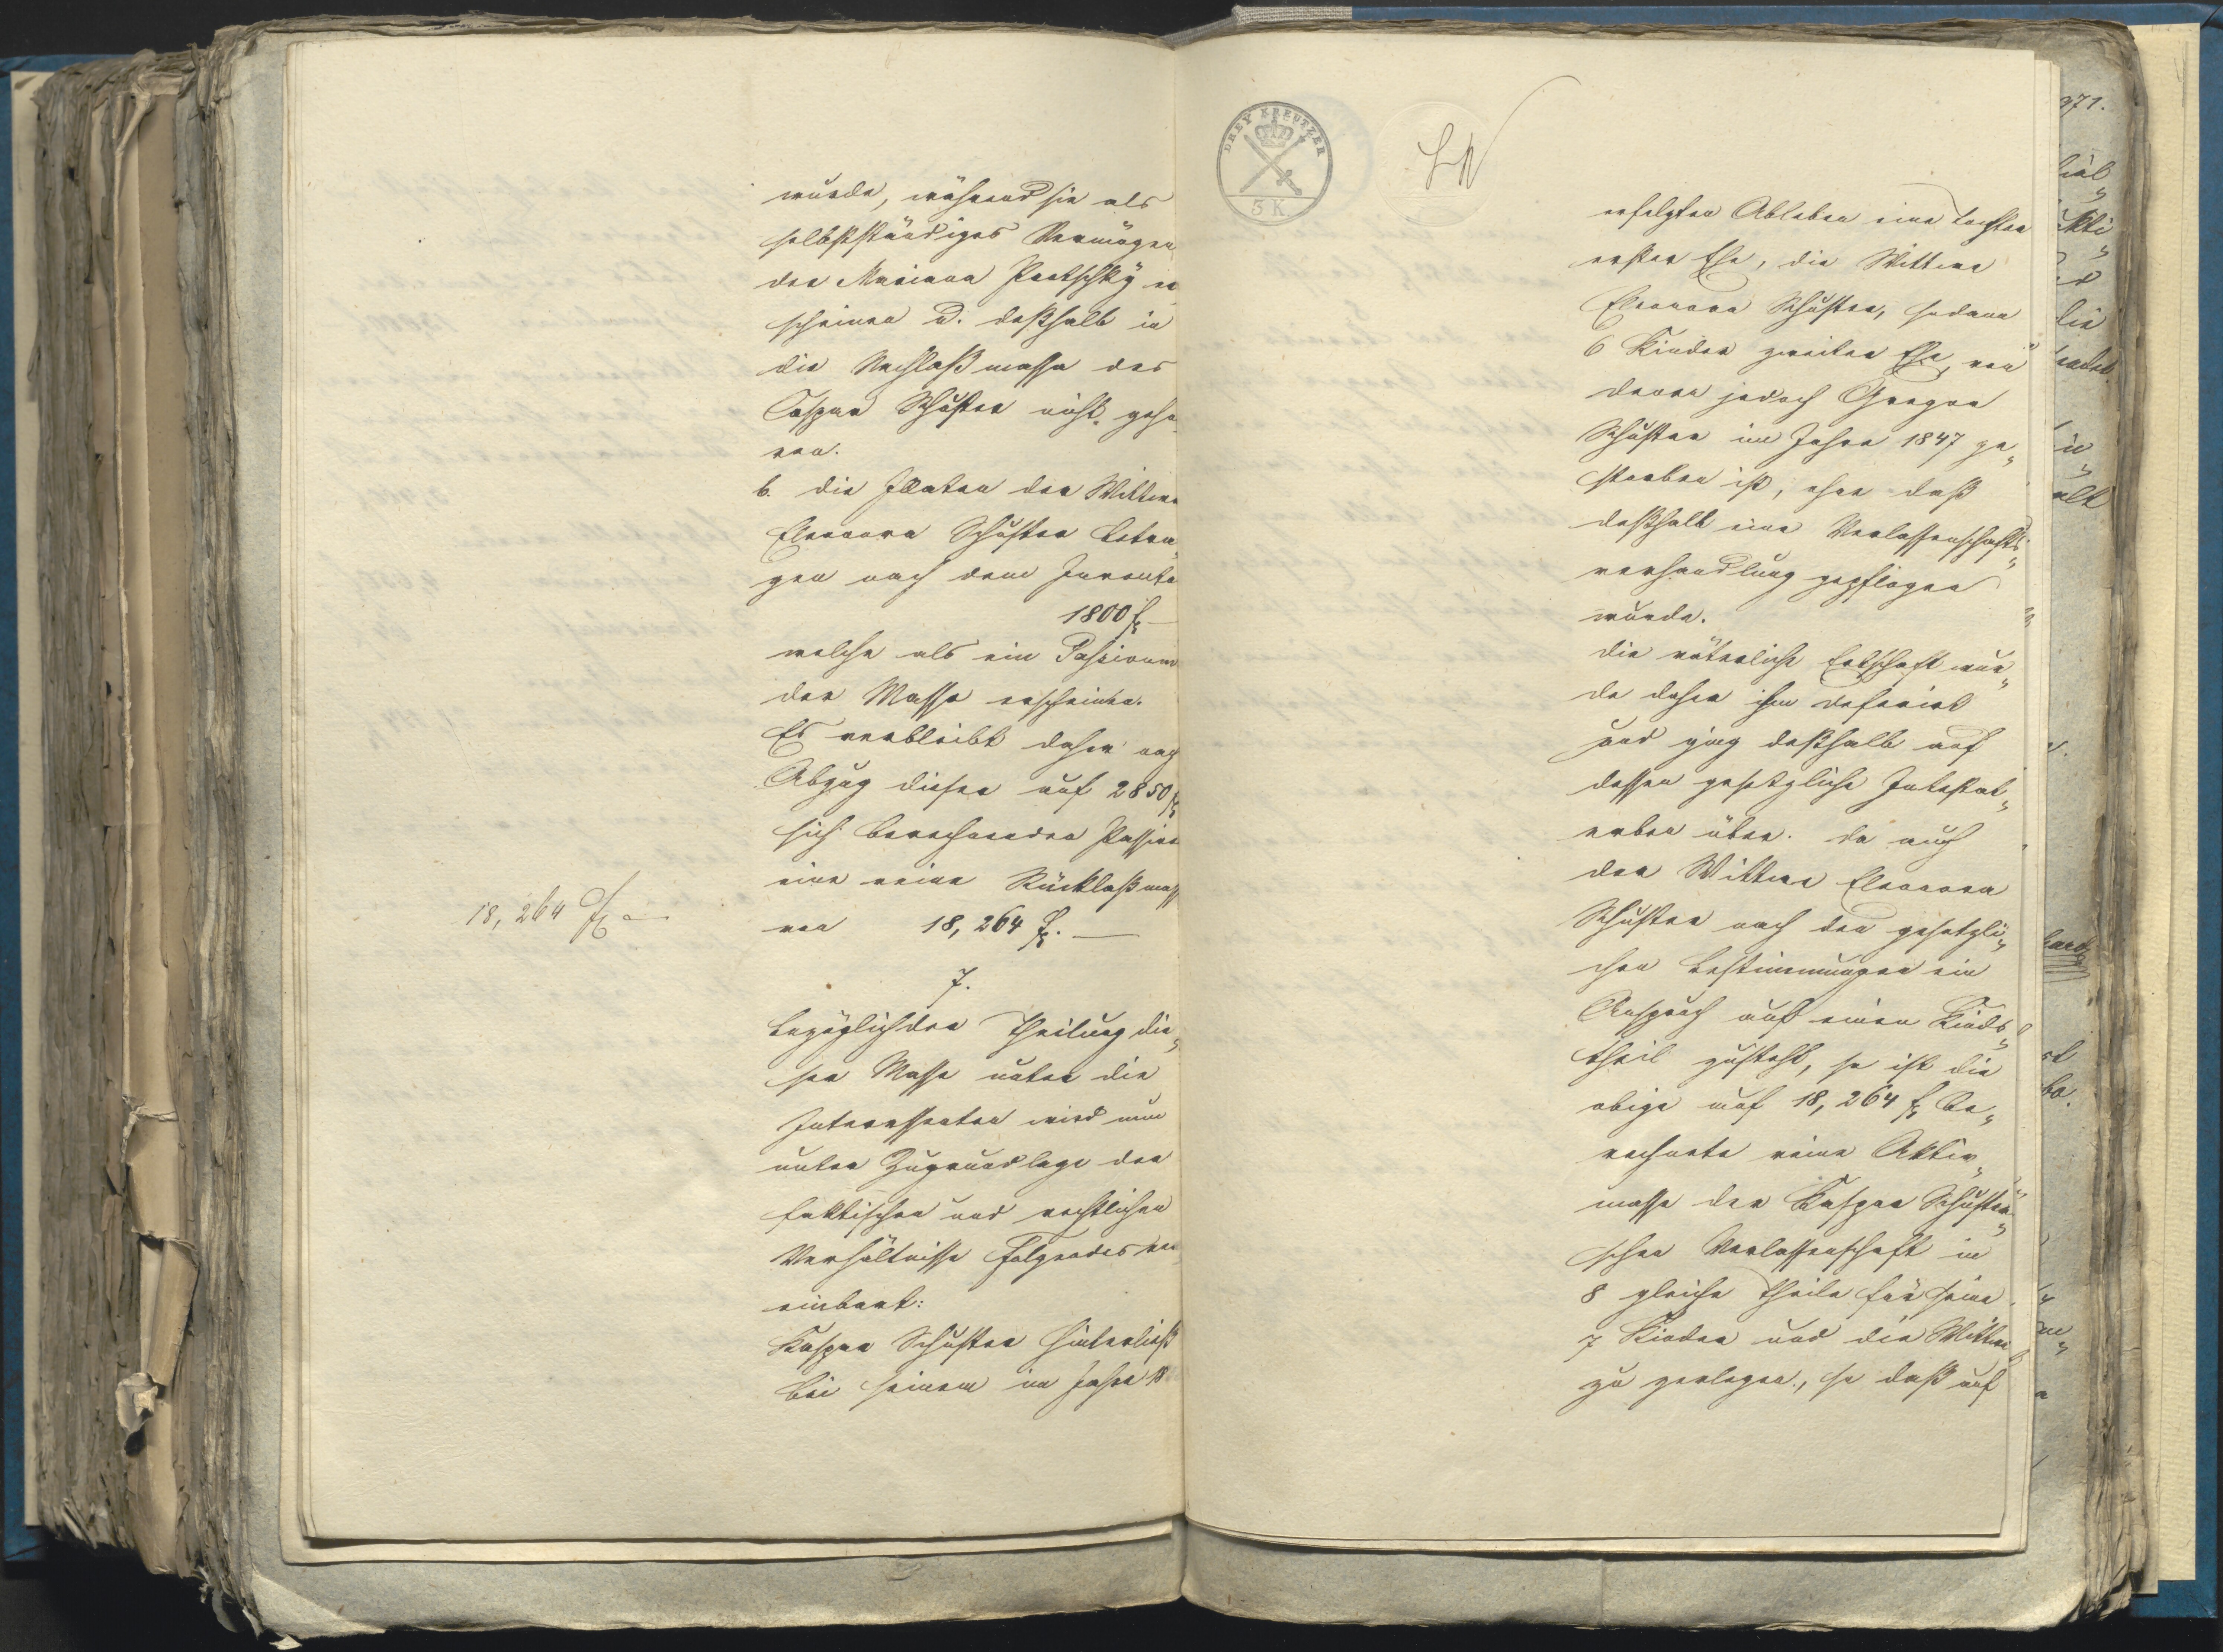 wurde, während sie als
selbstständiges Vermögen
der Mariana Pretschky er
scheinen u. deßhalb in
die Nachlaßmasse des
Caspar Schuster nicht gehö
ren.
6. die Illaten der Wittwe
Eleonora Schuster betra
gen nach dem Inventa
1800 f –
welche als ein Passivum
der Masse erscheinen.
Es verbleibt daher nach
Abzug dieser auf 2850 f
sich berechnenden Passiva
eine reine Rücklaßmass
18,264 f –
von 18,264 f. —
7.
Bezüglich der Theilung die„
ser Masse unter die
Interessenten wird nun
unter Zugrundlage der
faktischen und rechtlichen
Verhältnisse Folgendes ver
einbart:
Kaspar Schuster hinterließ
bei seinem im Jahre 18
DREY KREUTZER
3 K.
erfolgten Ableben eine Tochter
erster Ehe, die Wittwe
Eleonora Schuster, sodann
6 Kinder zweiter Ehe, von
denen jedoch Gregor
Schuster im Jahre 1847 ge„
storben ist, ohne daß
deßhalb eine Verlassenschafts„
verhandlung gepflogen
wurde.
Die väterliche Erbschaft wur„
de daher ihm deferirt
und ging deßhalb auf
dessen gesetzliche Intestat„
erben über. Da auch
der Wittwe Eleonora
Schuster nach den gesetzli„
chen Bestimmungen ein
Anspruch auf einen Kinds„
theil zusteht, so ist die
obige auf 18,264 f be„
rechnete reine Aktiv„
masse der Kaspar Schuster„
schen Verlassenschaft in
8 gleiche Theile für seine
7 Kinder und die Wittwe
zu zerlegen, so daß auf
971.